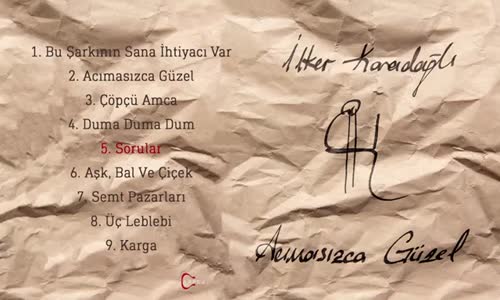 1. Bu Şarkının Sana İhtiyacı Var
2. Acımasızca Güzel
3. Çöpçü Amca
4. Duma Duma Dum
5. Sorular
6. Aşk, Bal Ve Çiçek
7. Semt Pazarları
8. Üç Leblebi
9. Karga
İlker Karadağlı
Acımasızca Güzel